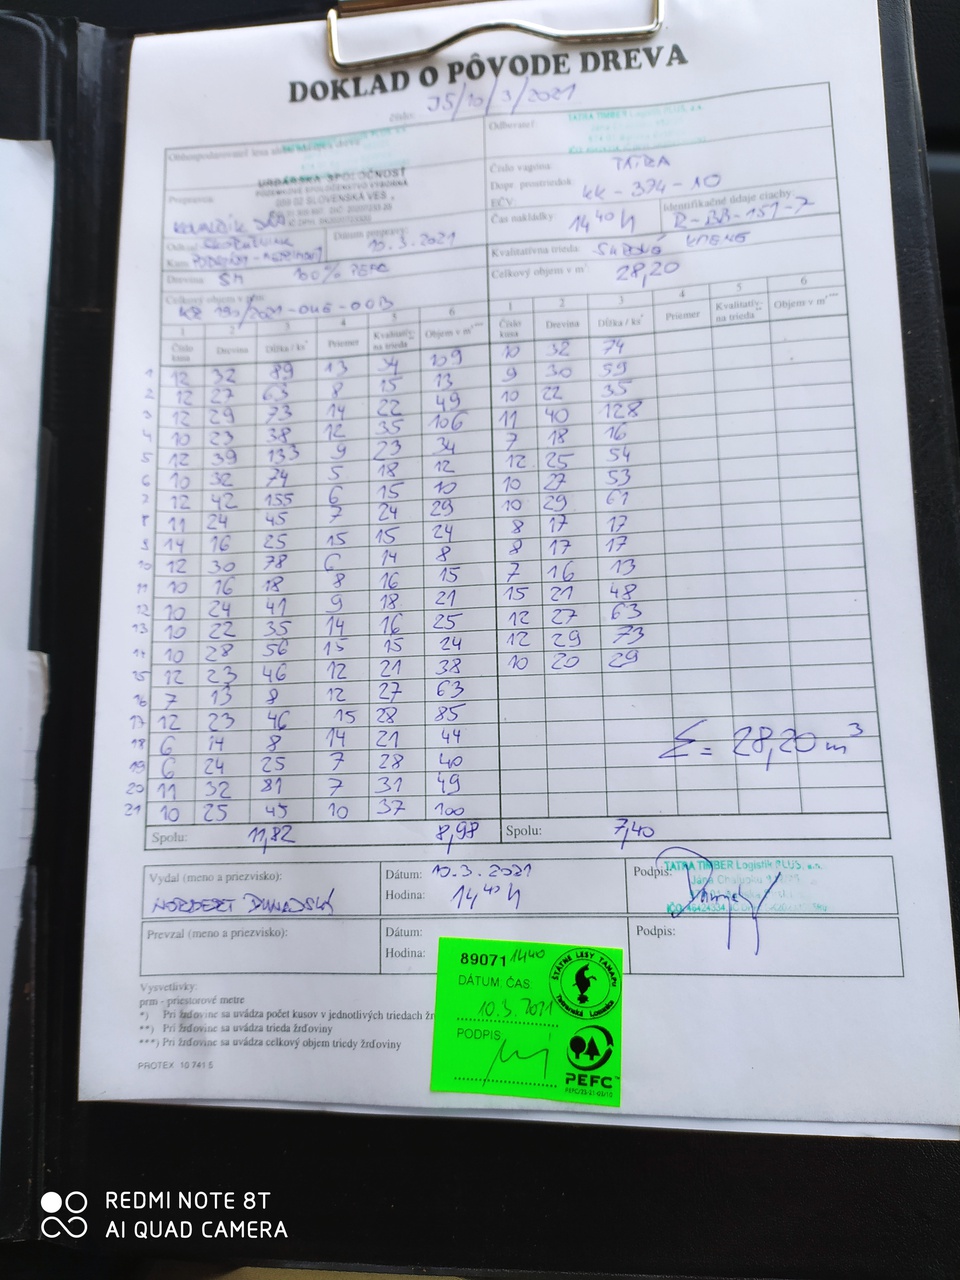 DOKLAD O PÔVODE DREVA
číslo: 35/10/3/2021
Obhospodarovateľ lesa
URBÁRSKA SPOLOČNOSŤ
POZEMKOVÉ SPOLOČENSTVO VÝBORNÁ
059 02 SLOVENSKÁ VES
Prepravca
Dátum prepravy:
10.3.2021
Drevina SM 100% PEFC
Celkový objem v prm:
Odberateľ:
TATRA TIMBER Logistik PLUS, a.s.
Číslo vagóna: TATRA
Dopr. prostriedok
EČV: KK-374-10
Čas nakládky: 14 40 h
Identifikačné údaje ciachy
R-BB-151-7
Kvalitatívna trieda:
KMENE
Celkový objem v m³ 28,20
1 2 3 4 5 6 1 2 3 4 5 6
Číslo kusa Drevina Dĺžka / ks* Priemer Kvalitatív-na trieda** Objem v m³*** Číslo kusa Drevina Dĺžka / ks* Priemer Kvalitatív-na trieda** Objem v m³***
1 12 32 89 13 34 109 10 32 74
2 12 27 63 8 15 13 9 30 59
3 12 29 73 14 22 49 10 22 35
4 10 23 38 12 35 106 11 40 128
5 12 39 133 9 23 34 7 18 16
6 10 32 74 5 18 12 12 25 54
7 12 42 155 6 15 10 10 27 53
8 11 24 45 7 24 29 10 29 61
9 14 16 25 15 15 24 8 17 17
10 12 30 78 6 14 8 8 17 17
11 10 16 18 8 16 15 7 16 13
12 10 24 41 9 18 21 15 21 48
13 10 22 35 14 16 25 12 27 63
14 10 28 56 15 15 24 12 29 73
15 12 23 46 12 21 38 10 20 29
16 7 13 8 12 27 63
17 12 23 46 15 28 85
18 6 14 8 14 21 44
19 6 24 25 7 28 40
20 11 32 81 7 31 49
21 10 25 45 10 37 100
Σ = 28,20 m³
Spolu: 11,82 8,98 Spolu: 7,40
Vydal (meno a priezvisko):
Dátum: 10.3.2021
Hodina: 14 40 h
Podpis:
TATRA TIMBER Logistik PLUS, a.s.
Prevzal (meno a priezvisko):
Dátum:
Hodina:
Podpis:
89071 1440
DÁTUM, ČAS
10.3.2021
PODPIS
ŠTÁTNE LESY TANAPU
Tatranská Lomnica
PEFC
Vysvetlivky:
prm - priestorové metre
*) Pri žrďovine sa uvádza počet kusov v jednotlivých triedach
**) Pri žrďovine sa uvádza trieda žrďoviny
***) Pri žrďovine sa uvádza celkový objem triedy žrďoviny
PROTEX 10 741 5
REDMI NOTE 8T
AI QUAD CAMERA